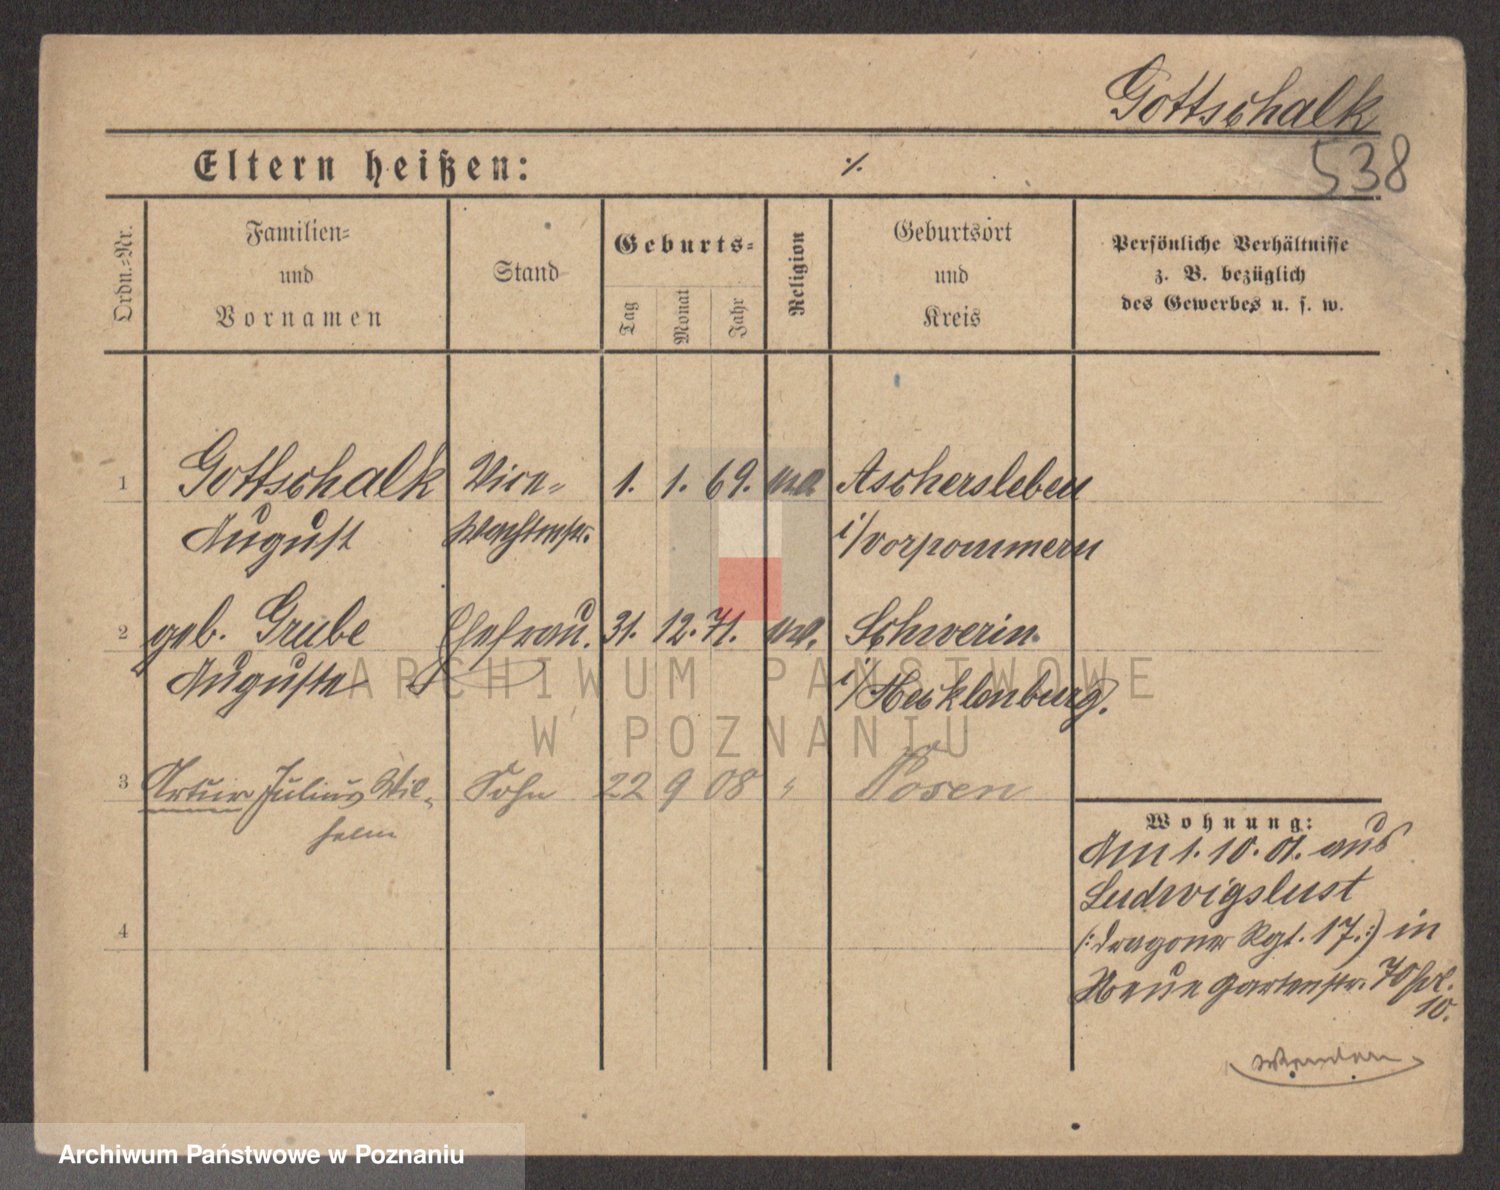 Gottschalk
538
Eltern heißen: ·/.
Ordn.=Nr.
Familien=
und
Vornamen
Stand
Geburts=
Tag
Monat
Jahr
Religion
Geburtsort
und
Kreis
Persönliche Verhältnisse
z. B. bezüglich
des Gewerbes u. s. w.
1 Gottschalk Vice= 1. 1. 69. Aschersleben
August Wachtmstr. i/vorpommern
2 geb. Grube Ehefrau. 31. 12. 71. Schwerin
Auguste i/Mecklenburg.
3 Artur Julius Wil= Sohn 22 9 08 " Posen
helm
4
Wohnung:
Am 1. 10. 01. aus
Ludwigslust
(: Dragoner Rgt. 17. :) in
Neue Gartenstr. 70
10.
ARCHIWUM PAŃSTWOWE
W POZNANIU
Archiwum Państwowe w Poznaniu